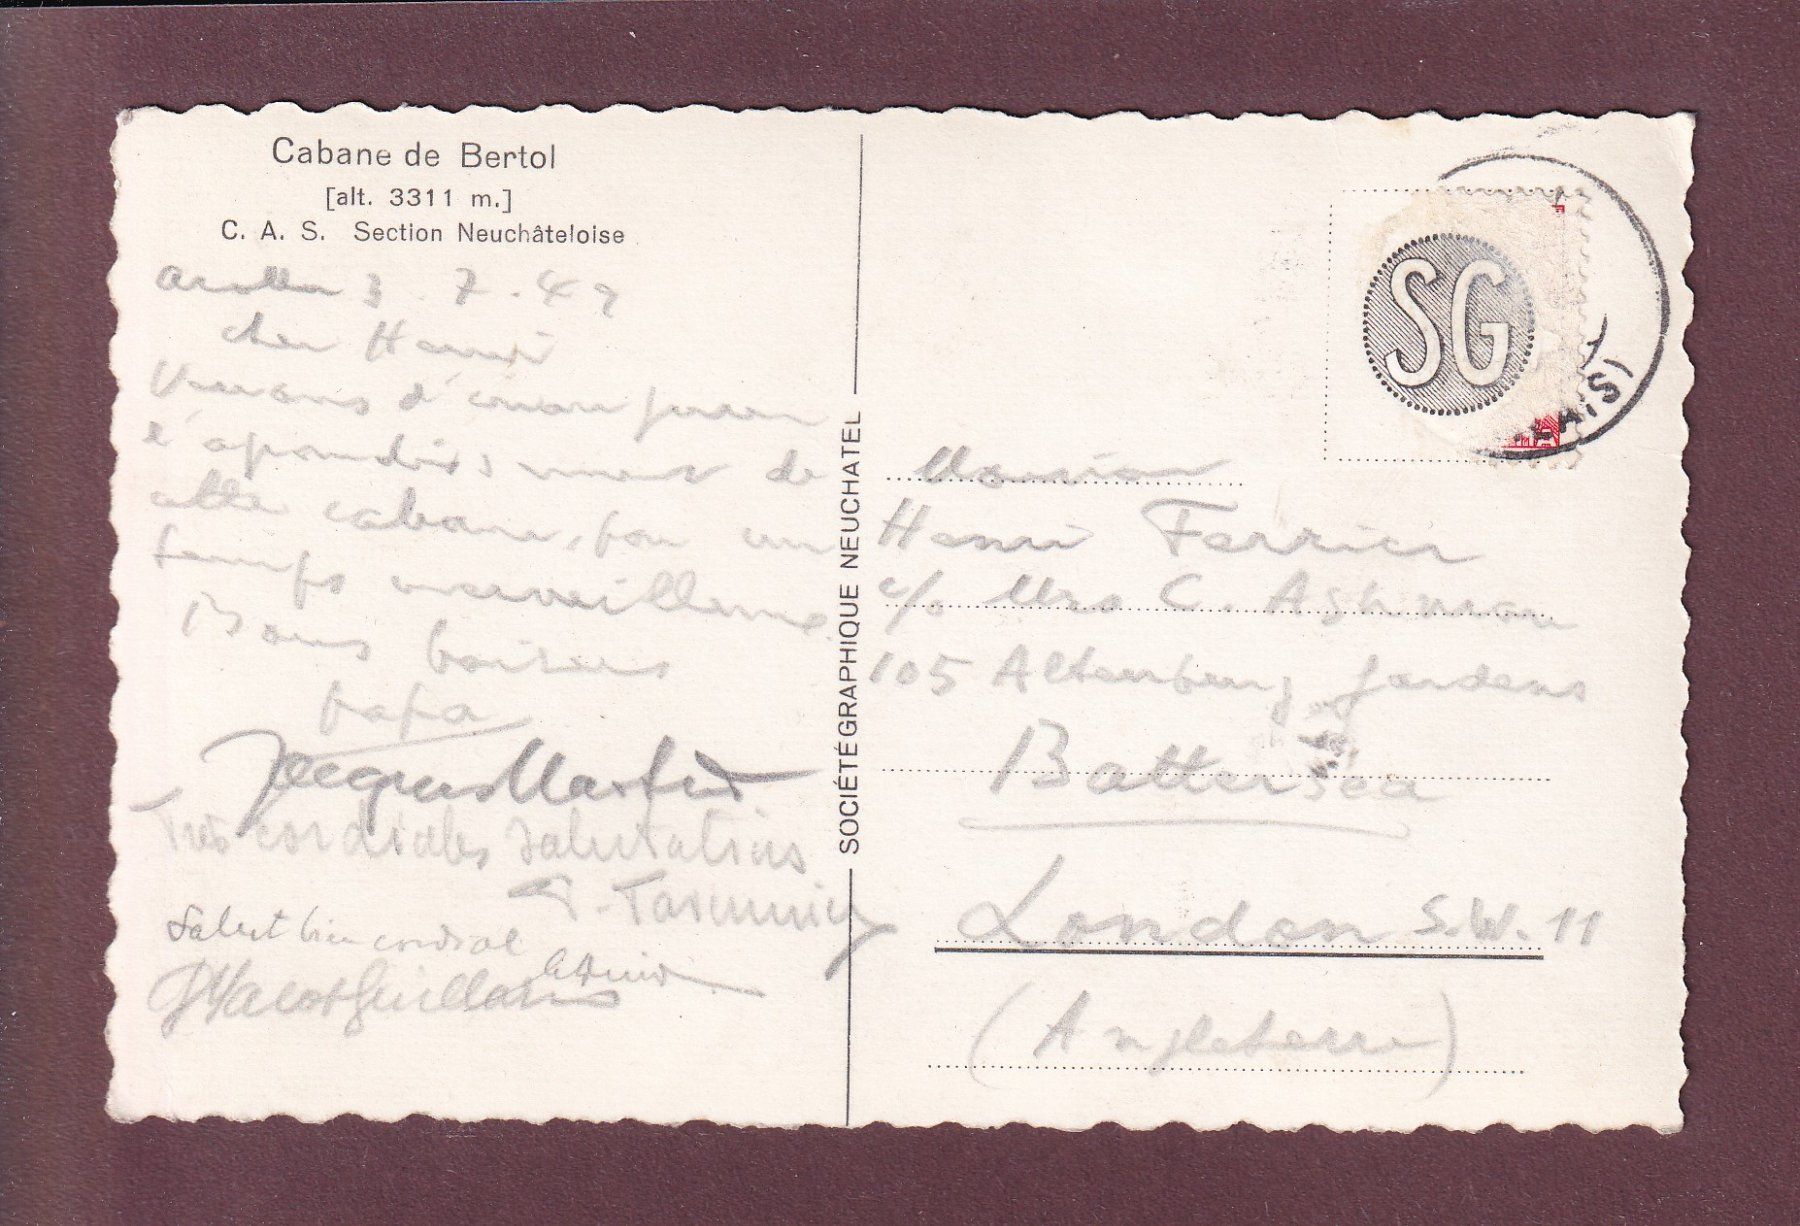 Cabane de Bertol
[alt. 3311 m.]
C. A. S. Section Neuchâteloise
Arolla 3.7.49
cher Henri
Venons d'
l' de
cette cabane, par un
temps merveilleux.
Bons baisers
papa
Jacques Martin
Très cordiales salutations
Salut bien cordial
SOCIÉTÉGRAPHIQUE NEUCHATEL
SG
Monsieur
Henri Ferrier
c/o Mrs C.
105 Altenburg gardens
Battersea
London S.W. 11
(Angleterre)